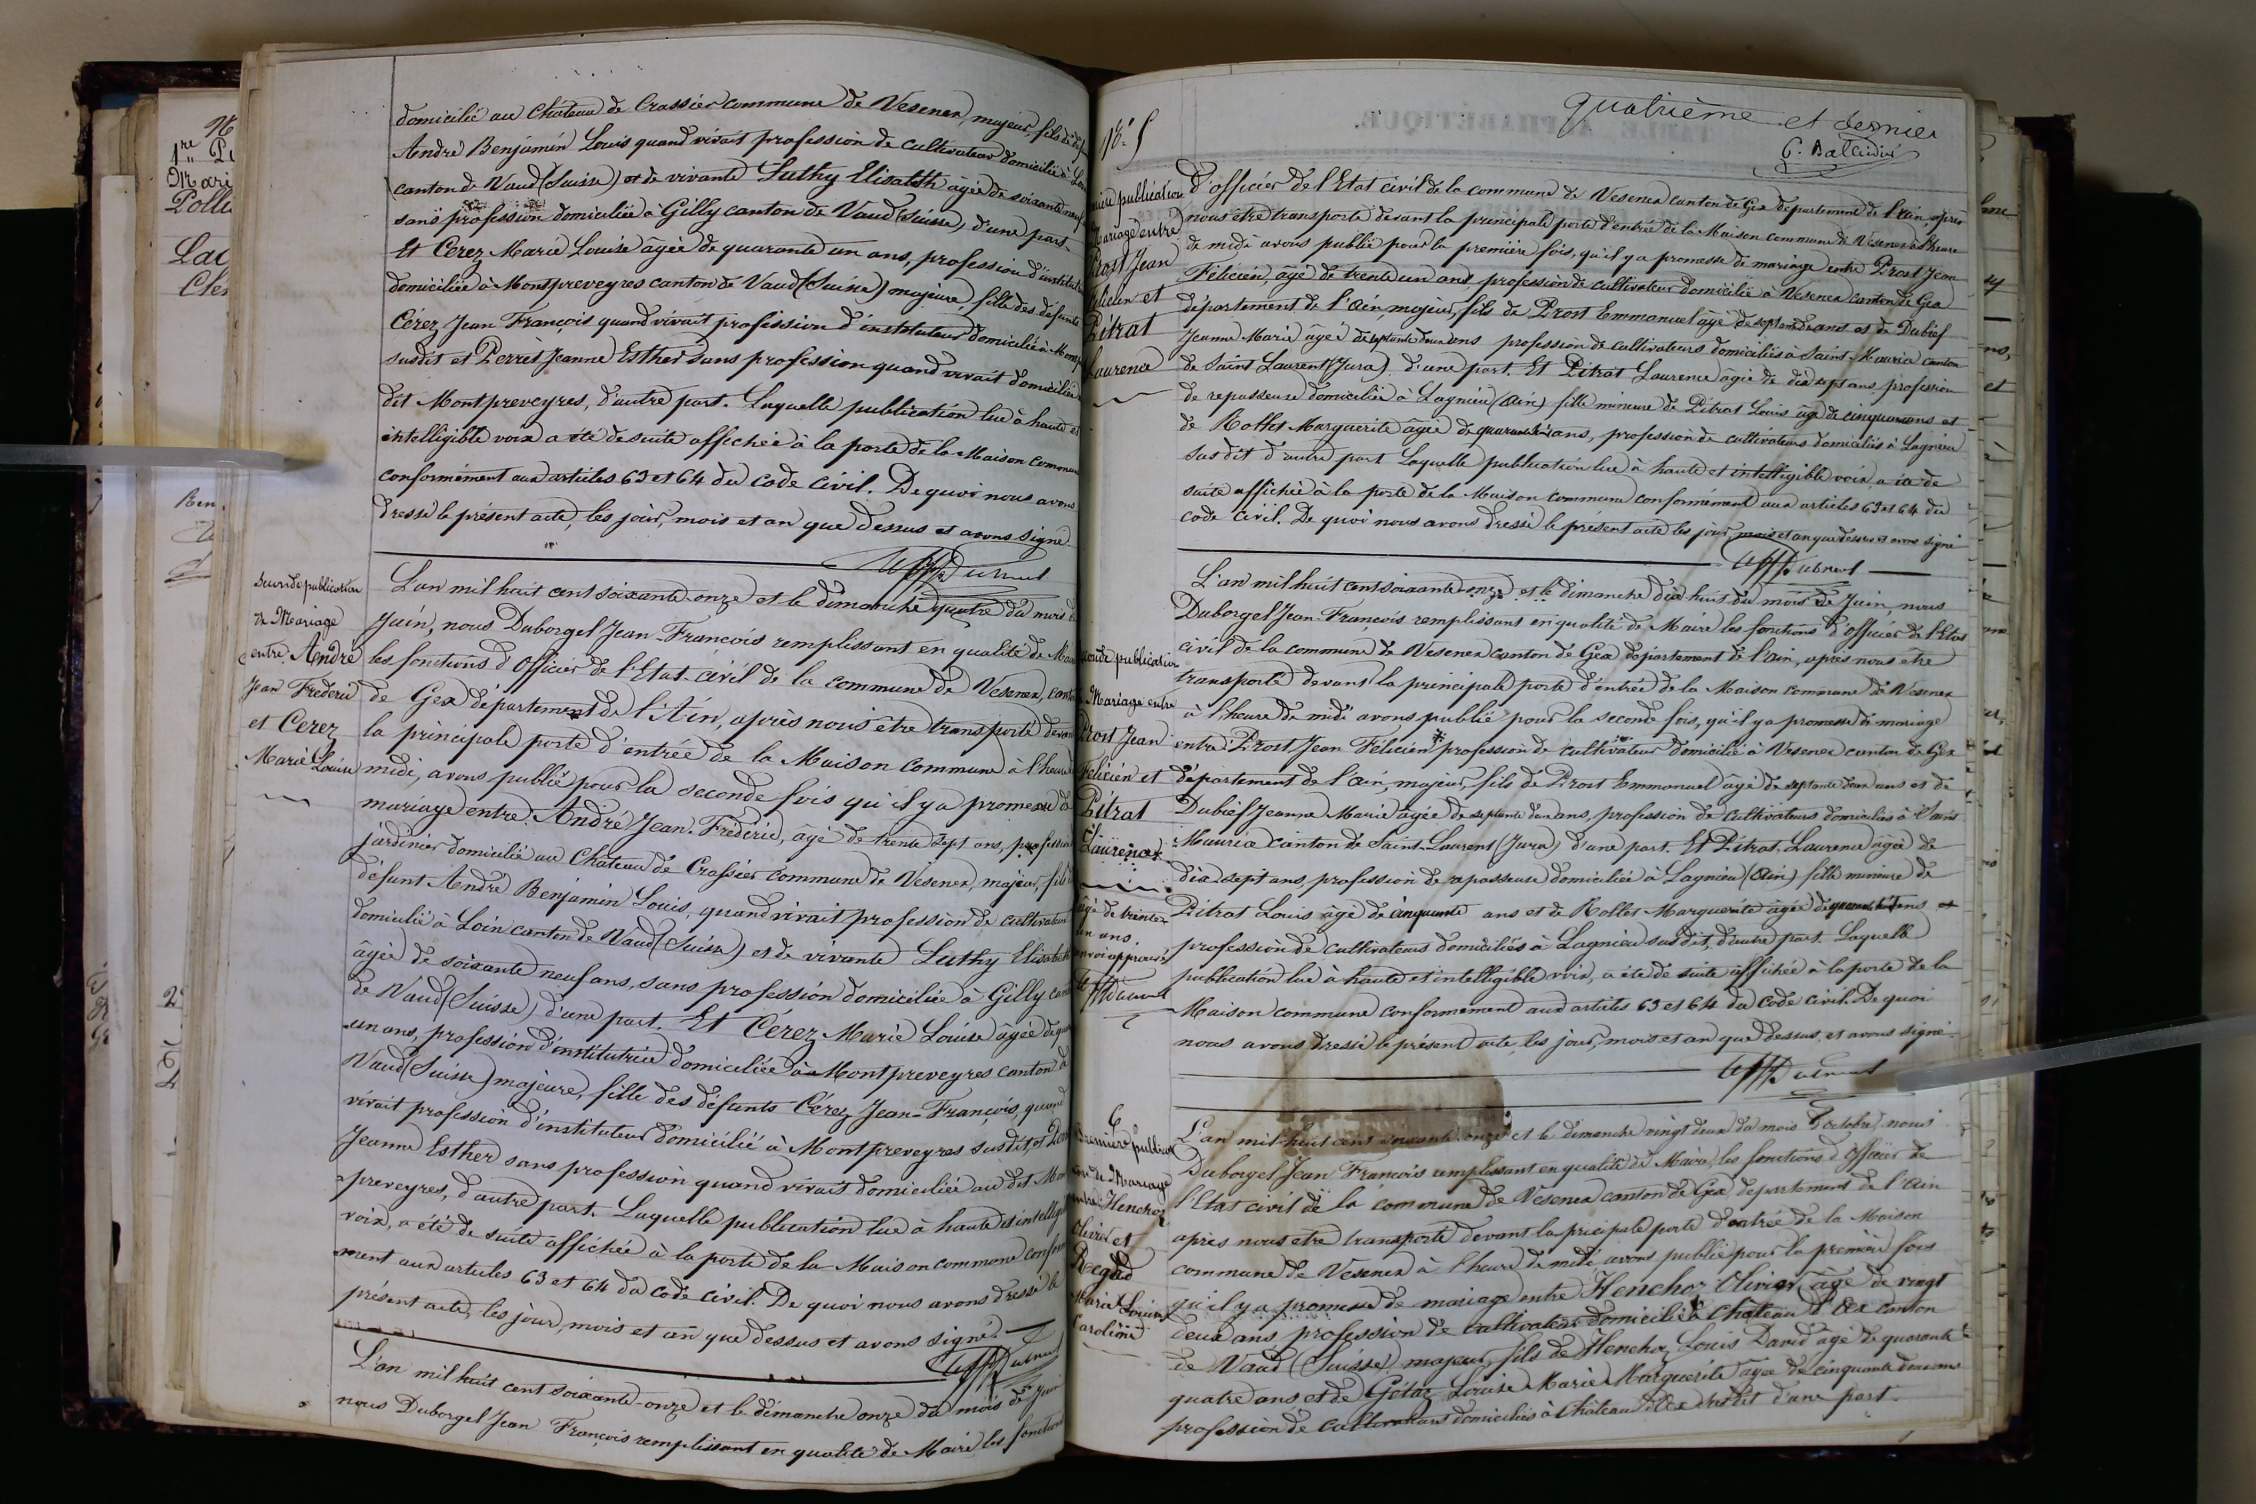 domicilié au Château de Crassier commune de Vesenex, majeur, fils de
André Benjamin Louis quand vivait profession de cultivateur domicilié à
canton de Vaud (Suisse) et de vivante Luthy Elisabeth âgée de soixante neuf
sans profession domiciliée à Gilly canton de Vaud (Suisse), d'une part.
Et Cerez Marie Louise âgée de quarante un ans, profession d'institut
domiciliée à Montpreveyres canton de Vaud (Suisse) majeure, fille des défunts
Cérez Jean François quand vivait profession d'instituteur domicilié à Mont
susdit et Perret Jeanne Esther sans profession quand vivait domiciliée
dit Montpreveyres, d'autre part. Laquelle publication lue à haute et
intelligible voix a été de suite affichée à la porte de la Maison commune
conformément aux articles 63 et 64 du code civil. De quoi nous avons
dressé le présent acte, les jour, mois et an que dessus et avons signé.
Deuxième publication
de Mariage
entre André
Jean Frédéric
et Cerez
Marie Louise
L'an mil huit cent soixante-onze et le dimanche quatre du mois de
Juin, nous Duborgel Jean-François remplissant en qualité de Maire
les fonctions d'Officier de l'Etat-civil de la commune de Vesenex, canton
de Gex département de l'Ain, après nous être transporté devant
la principale porte d'entrée de la Maison commune à l'heure
midi, avons publié pour la seconde fois qu'il y a promesse de
mariage entre André Jean-Frédéric, âgé de trente sept ans, profession
jardinier domicilié au Château de Crassier commune de Vesenex, majeur, fils
défunt André Benjamin Louis, quand vivait profession de cultivateur
domicilié à Loin canton de Vaud (Suisse) et de vivante Luthy Elisabeth
âgée de soixante neuf ans, sans profession domiciliée à Gilly can
de Vaud (Suisse) d'une part. Et Cérez Marie Louise âgée de qua
un ans, profession d'institutrice domiciliée à Montpreveyres canton de
Vaud (Suisse) majeure, fille des défunts Cérez Jean-François, quand
vivait profession d'instituteur domicilié à Montpreveyres susdit, et Per
Jeanne Esther sans profession quand vivait domiciliée au dit Mont
preveyres, d'autre part. Laquelle publication lue à haute et intelligi
voix, a été de suite affichée à la porte de la Maison commune conformé
ment aux articles 63 et 64 du code civil. De quoi nous avons dressé le
présent acte, les jour, mois et an que dessus et avons signé.
L'an mil huit cent soixante-onze et le dimanche onze du mois de Juin
nous Duborgel Jean François remplissant en qualité de Maire les fonctions
quatrième et dernier
N° 5
mière publication
Mariage entre
Prost Jean
Félicien et
Pitrat
Laurence
d'officier de l'Etat civil de la commune de Vesenex canton de Gex département de l'Ain, après
nous être transporté devant la principale porte d'entrée de la Maison commune de Vesenex à l'heure
de midi avons publié pour la première fois, qu'il y a promesse de mariage entre Prost Jean
Félicien, âgé de trente un ans profession de cultivateur domicilié à Vesenex canton de Gex
département de l'Ain, majeur, fils de Prost Emmanuel âgé de septante deux ans et de Dubief
Jeanne Marie âgée de septante deux ans profession de cultivateurs domiciliés à Saint-Mauria canton
de Saint Laurent (Jura) d'une part. Et Pitrat Laurence âgée de dix sept ans, profession
de repasseuse domiciliée à Lagnieu (Ain) fille mineure de Pitrat Louis âgé de cinquante ans et
de Rollet Marguerite âgée de ans, profession de cultivateurs domiciliés à Lagnieu
susdit d'autre part Laquelle publication lue à haute et intelligible voix, a été de
suite affichée à la porte de la Maison commune conformément aux articles 63 et 64 du
code civil. De quoi nous avons dressé le présent acte les jour, mois et an que dessus et avons signé
conde publication
Mariage entre
Prost Jean
Félicien et
Pitrat
Laurence
âgé de trente
un ans
renvoi approuvé
L'an mil huit cent soixante-onze et le dimanche dix huit du mois de Juin, nous
Duborgel Jean-François remplissant en qualité de Maire les fonctions d'officier de l'Etat
civil de la commune de Vesenex canton de Gex département de l'Ain, après nous être
transporté devant la principale porte d'entrée de la Maison commune de Vesenex
à l'heure de midi avons publié pour la seconde fois, qu'il y a promesse de mariage
entre Prost Jean Félicien * profession de cultivateur domicilié à Vesenex canton de Gex
département de l'Ain, majeur, fils de Prost Emmanuel âgé de septante deux ans et de
Dubief Jeanne Marie âgée de septante deux ans, profession de cultivateurs domiciliés à Saint
Mauria canton de Saint-Laurent (Jura) d'une part. Et Pitrat Laurence âgée de
dix-sept ans, profession de repasseuse domiciliée à Lagnieu (Ain) fille mineure de
Pitrat Louis âgé de cinquante ans et de Rollet Marguerite âgée de ans et
profession de cultivateurs domiciliés à Lagnieu susdit, d'autre part. Laquelle
publication lue à haute et intelligible voix, a été de suite affichée à la porte de la
Maison commune conformément aux articles 63 et 64 du code civil. De quoi
nous avons dressé le présent acte, les jour, mois et an que dessus, et avons signé.
6
Première publica
tion de Mariage
entre Henchoz
Olivier et
Regad
Marie Louise
Caroline
L'an mil-huit cent soixante onze et le dimanche vingt deux du mois d'Octobre, nous
Duborgel Jean François remplissant en qualité de Maire, les fonctions d'Officier de
l'Etat civil de la commune de Vesenex canton de Gex département de l'Ain
après nous être transporté devant la pricipale porte d'entrée de la Maison
commune de Vesenex à l'heure de midi avons publié pour la première fois
qu'il y a promesse de mariage entre Henchoz Olivier âgé de vingt
deux ans profession de cultivateur domicilié à Château d'Oex canton
de Vaud (Suisse) majeur, fils de Henchoz Louis David âgé de quarante
quatre ans et de Gétaz Louise Marie Marguerite âgée de cinquante deux ans
profession de cultivateurs domiciliés à Château d'Oex susdit d'une part.